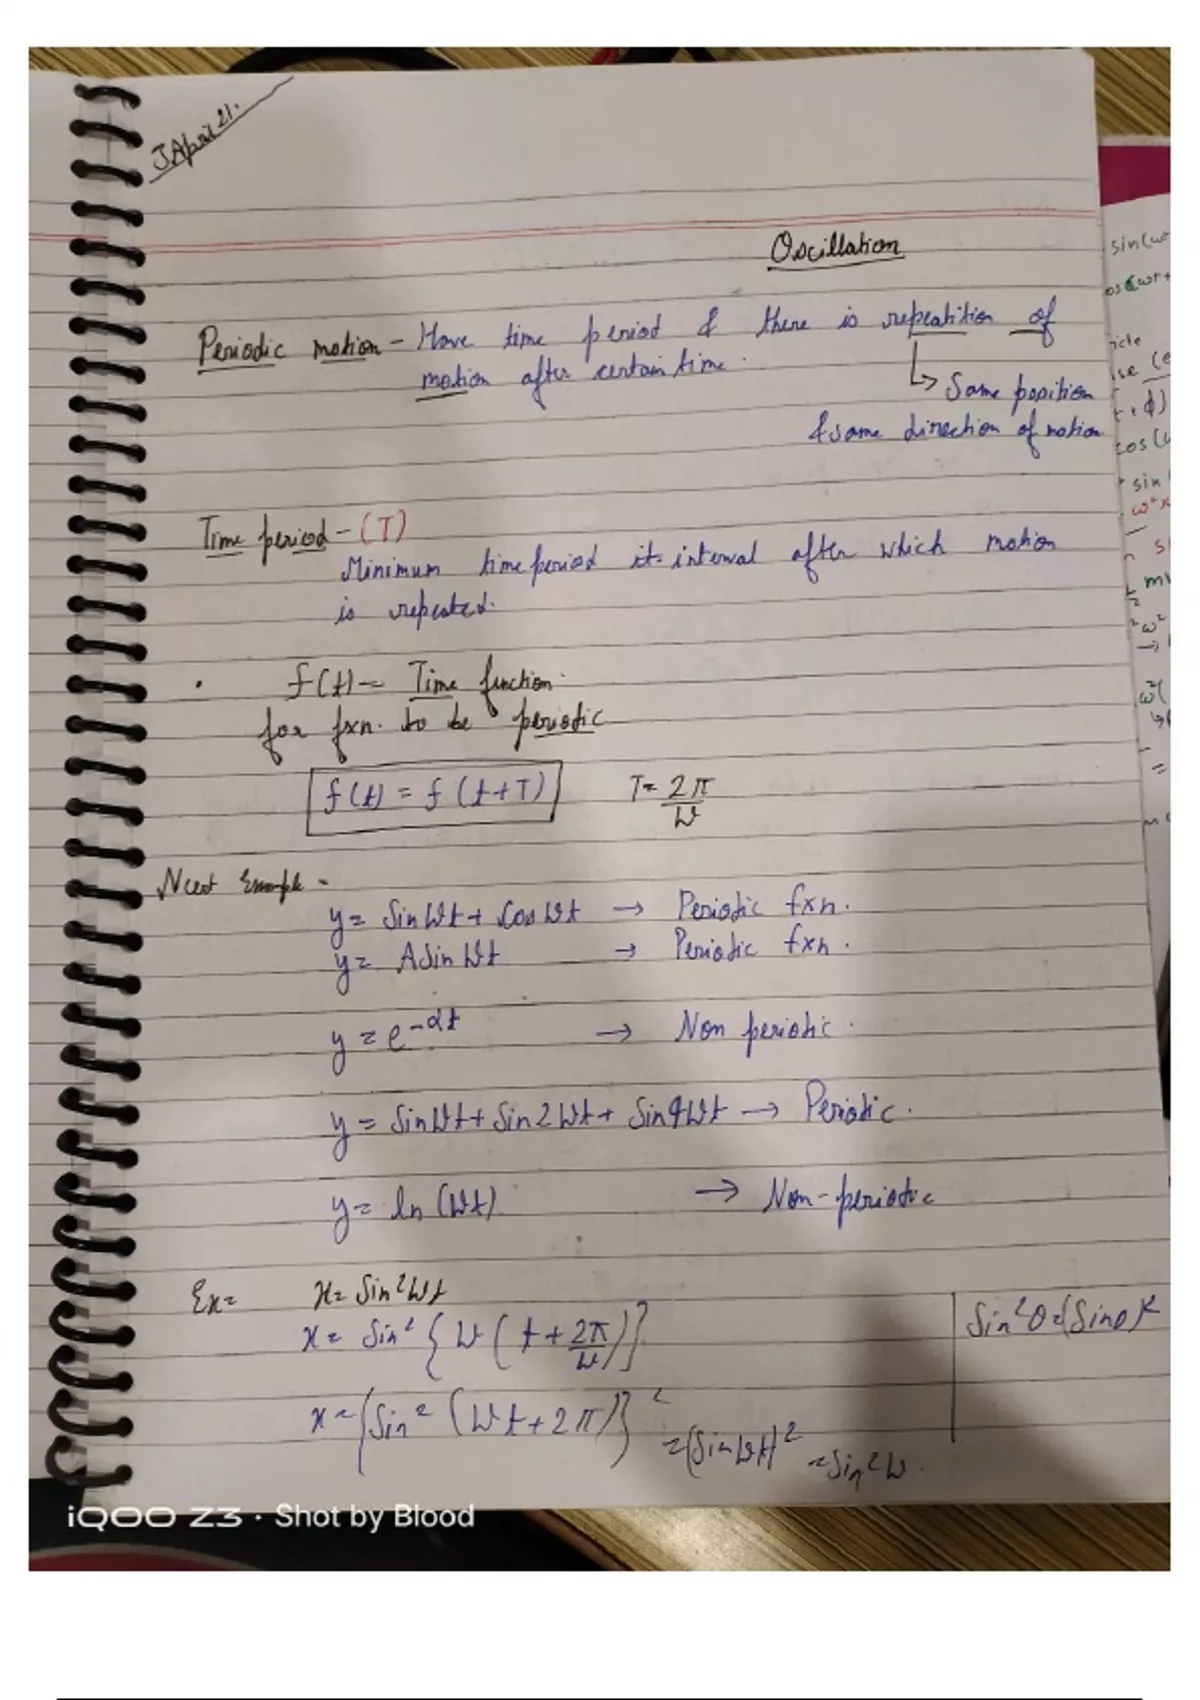 J April 21.
Oscillation
Periodic motion - Have time period & there is repeatition of
motion after certain time.
↳ Same position
& same direction of motion
Time period - (T)
Minimum time period it- interval after which motion
is repeated.
• f(t) - Time function.
for fxn. to be periodic
f(t) = f(t+T)   T = 2π/W
Ncert Example -
y = Sin Wt + Cos Wt → Periodic fxn.
y = A Sin Wt → Periodic fxn.
y = e^-αt → Non periodic.
y = Sin Wt + Sin 2Wt + Sin 4Wt → Periodic.
y = ln (Wt) → Non-periodic
Ex= x = Sin²Wt
x = Sin² {W (t + 2π/W)}
Sin²θ = (Sinθ)²
x = {Sin² (Wt + 2π)}² = (Sin Wt)² = Sin²W.
sin(w
os(wt+
icle
ise (e
t+ϕ)
cos(
sin
ω²x
mv
ω²
ω²(
iQOO Z3 · Shot by Blood